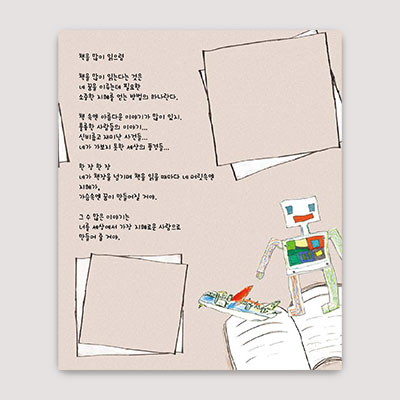 책을 많이 읽으렴
책을 많이 읽는다는 것은
네 꿈을 이루는데 필요한
소중한 지혜를 얻는 방법의 하나란다.
책 속엔 아름다운 이야기가 많이 있지.
훌륭한 사람들의 이야기...
신비롭고 재미난 사건들...
네가 가보지 못한 세상의 풍경들...
한 장 한 장
네가 책장을 넘기며 책을 읽을 때마다 네 머릿속엔
지혜가,
가슴속엔 꿈이 만들어질 거야.
그 수 많은 이야기는
너를 세상에서 가장 지혜로운 사람으로
만들어 줄 거야.